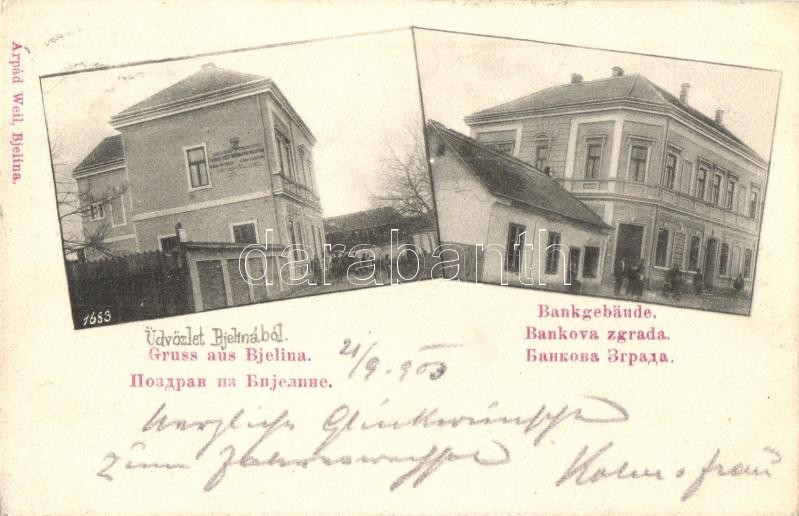 Arpád Weil, Bjelina.
1683
darabanth
Üdvözlet Bjelinából.
Gruss aus Bjelina.
Поздрав из Бијелине.
Bankgebäude.
Bankova zgrada.
Банкова Зграда.
21/9. 903
Herzliche Glückwünsche
zum Jahreswechsel